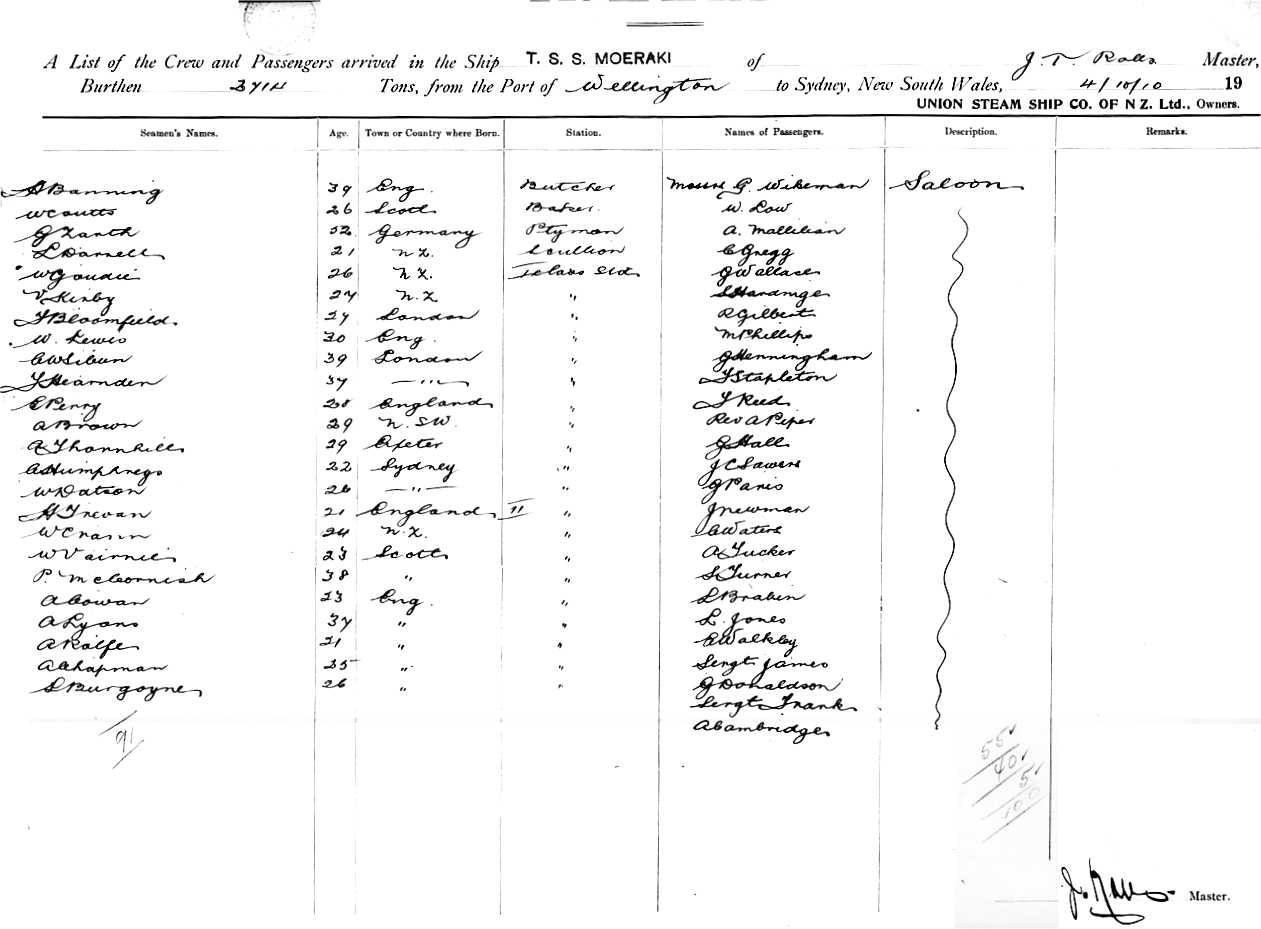 A List of the Crew and Passengers arrived in the Ship T. S. S. MOERAKI of J. T. Rolls Master,
Burthen 2714 Tons, from the Port of Wellington to Sydney, New South Wales, 4/10/10 19
UNION STEAM SHIP CO. OF N Z. Ltd., Owners.
Seamen's Names. Age. Town or Country where Born. Station. Names of Passengers. Description. Remarks.
A Banning 39 Eng. Butcher Messrs G. Wikeman Saloon
W Coutts 26 Scott Baker. W. Low
G Xanth 52 Germany Ptyman A. Mallihan
L Darnell 21 N Z. Scullion C Gregg
W Goudie 26 N Z. 1 Class Std G Wallace
V Kirby 27 N. Z " S Hardinge
F Bloomfield. 27 London " R Gilbert
W. Lewis 30 Eng. " M Phillips
39 London " G Henningham
T Hearnden 37 — " — " F Stapleton
E Perry 28 England " T Reed
A Brown 29 N. SW. " Rev A Piper
A Thornhill 29 Exeter " G Hall
A Humphreys 22 Sydney " J C Sawers
W Datson 26 — " — " G Paris
H Trevan 21 England II " J Newman
W Crann 24 N. Z. " A Waters
W 23 Scott " A Tucker
P. McCornish 38 " " S Turner
A Cowan 23 Eng. " L Braben
A Lyons 37 " " L. Jones
A Rolfe 21 " " E Walkley
A Chapman 35 " " Sergt James
S Burgoyne 26 " " G Donaldson
Sergt Frank
A Cambridge
91
55
40
5
100
J. Rolls Master.